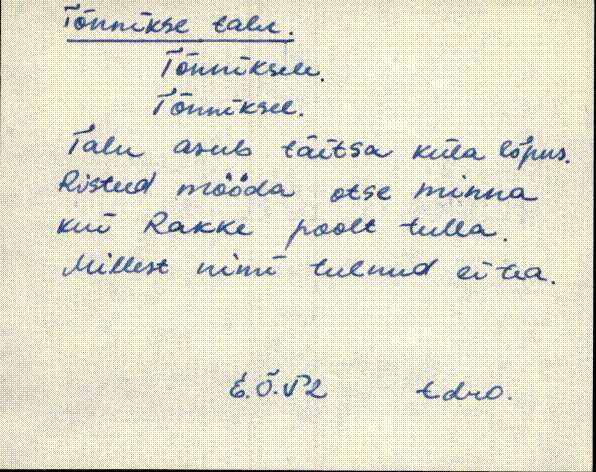 Tõnnikse talu.
Tõnniksele.
Tõnniksel.
Talu asub täitsa küla lõpus.
Risteed mööda otse minna
kui Rakke poolt tulla.
Millest nimi tulnud ei tea.
E.Õ.